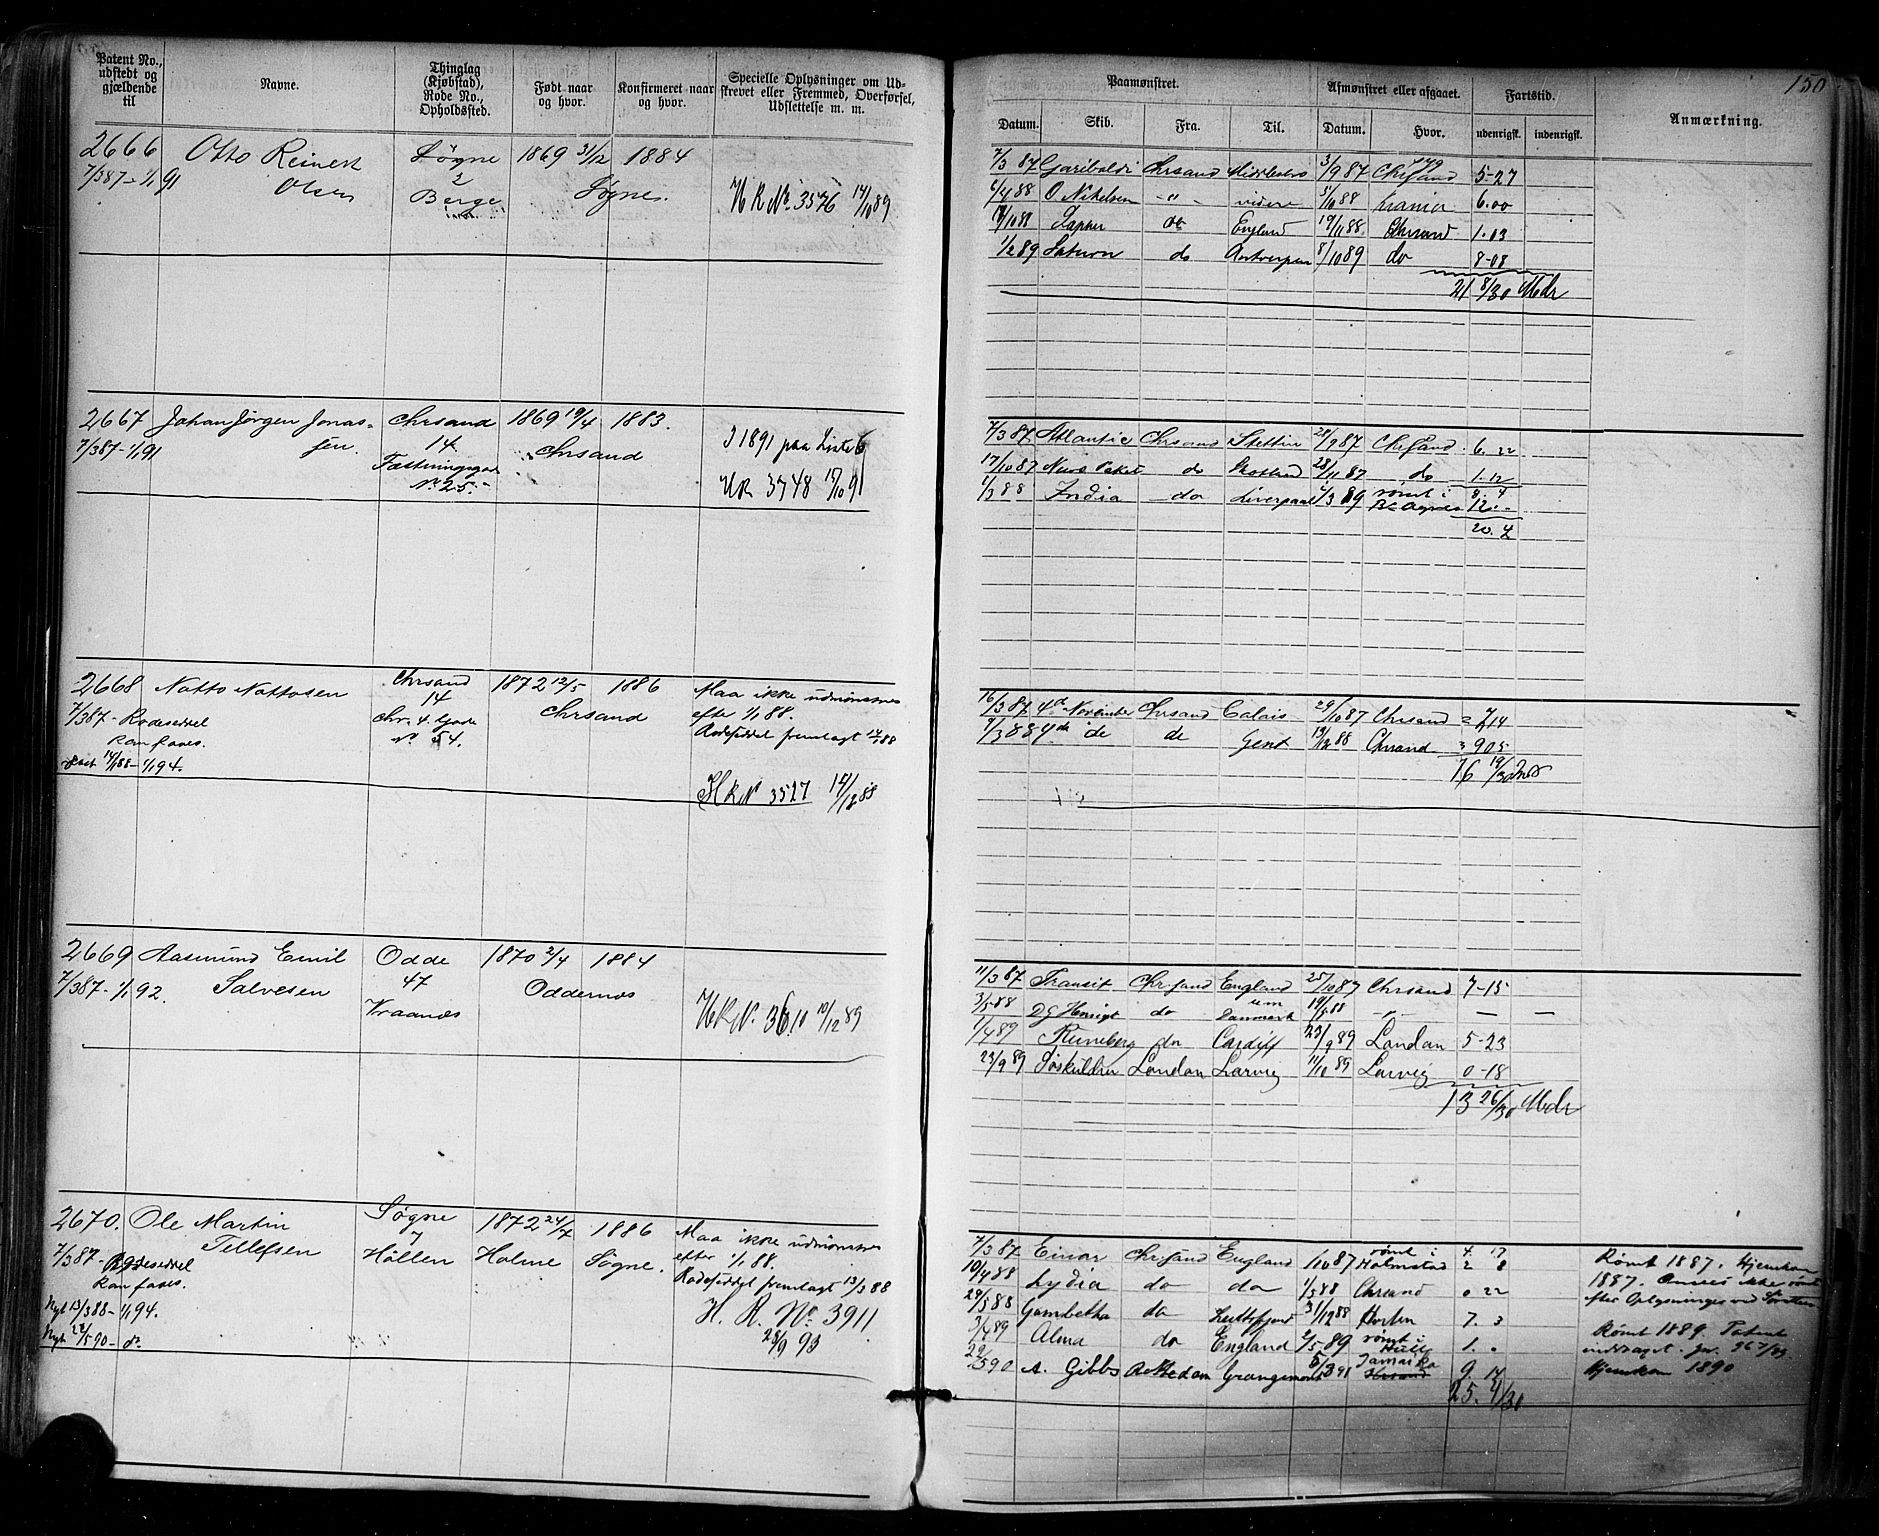 150
Patent No., udstedt og gjældende til
Navne.
Thinglag (Kjøbstad), Rode No., Opholdssted.
Født naar og hvor.
Konfirmeret naar og hvor.
Specielle Oplysninger om Udskrevet eller Fremmed, Overførsel, Udslettelse m. m.
Paamønstret.
Afmønstret eller afgaaet.
Fartstid.
Anmærkning.
Datum. Skib. Fra. Til. Datum. Hvor. udenrigsk. indenrigsk.
2666 Otto Reinert Søgne 1869 31/12 1884
7/3 87 - 1/1 91 Olsen 2 Søgne.
Berge
HR No. 3576 14/10 89
7/3 87 Garibaldi Chrsand 3/9 87 5-27
6/4 88 O Nikelsen - " - videre 5/10 88 6.00
England 19/11 88 Chrsand 1.03
1/2 89 Saturn do Antwerpen 8/10 89 do 8-08
21 8/30 Mdr
2667 Johan Jørgen Jonas- Chrsand 1869 19/4 1883.
7/3 87 - 1/1 91 sen. 14 Chrsand
Fæstningsgad
No 25.
I 1891 paa Liste 6
HR 3748 17/10 91
7/3 87 Atlantic Chrsand Stettin 28/9 87 Chrsand 6. 22
17/10 87 do 28/11 87 do 1.12
8. 4
1/3 88 India do Liverpool 1/3 89 rømt i 12.-
20. 4
2668 Natto Nattosen Chrsand 1872 12/5 1886
7/3 87 - Rodeseddel 14 Chrsand
kan faaes. Chr. 4. Gade
No 54.
14/1 88 - 1/1 94.
Maa ikke udmønstres
efter 1/1 88.
Rodeseddel fremlagt 14/1 88
HR No 3527 14/12 88
16/3 87 4de November Chrsand Calais 29/10 87 Chrsand 7 14
9/3 88 4de de de Gent 19/12 88 Chrsand 9 05
16 19/30 Mdr
2669 Aasmund Emil Odde 1870 2/4 1884
7/3 87 - 1/1 92. Salvesen 47 Oddernes
Vraanes
HR No. 3610 10/12 89
11/3 87 Transit Chrsand England 25/10 87 Chrsand 7-15
3/5 88 do Danmark 19/8 88 - " - — —
1/4 89 Runeberg do Cardiff 23/9 89 London 5-23
23/9 89 London Larvig 11/10 89 Larvig 0-18
13 26/30 Mdr
2670. Ole Martin Søgne 1872 24/7 1886
7/3 87 - Tellefsen 7 Holme Søgne.
Rodeseddel Höllen
kan faaes.
Nyt 13/3 88 - 1/1 94.
Nyt 22/5 90 - do
Maa ikke udmønstres
efter 1/1 88.
Rodeseddel fremlagt 13/3 88
H. R. No. 3911
28/9 93
7/3 87 Einar Chrsand England 1/10 87 rømt i Halmstad 4. 17
2 8
10/4 88 Lydia do do 1/5 88 Chrsand 0 22
29/5 88 Gambetta do 31/12 88 Horten 7. 3
3/4 89 Alma do England 2/5 89 rømt i Hull 1. .
22/5 90 A. Gibbs Grangemouth 5/3 91 Jamaika 9. 17
25. 4/30
Rømt 1887. Hjemkom
1887. Ansees ikke rømt
efter Oplysninger ved
Rømt 1889. Patent
inddraget.
Hjemkom 1890